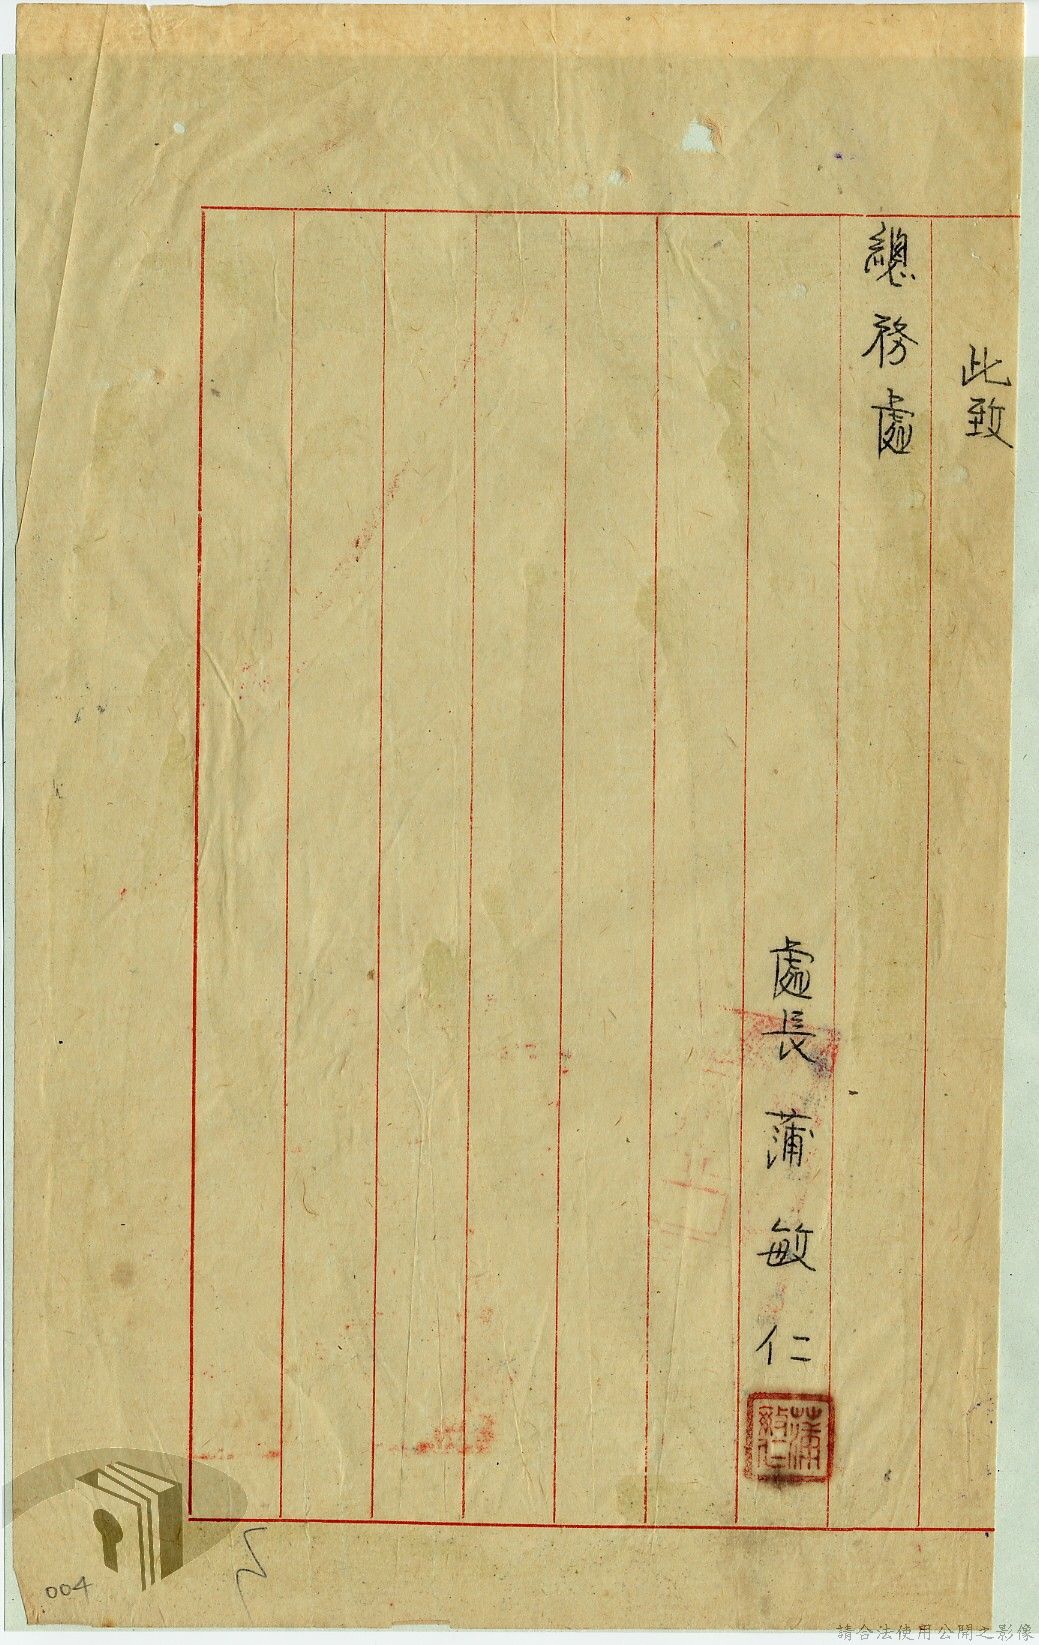 此致
總務處
處長 蒲敏仁
蒲敏仁
004
請合法使用公開之影像